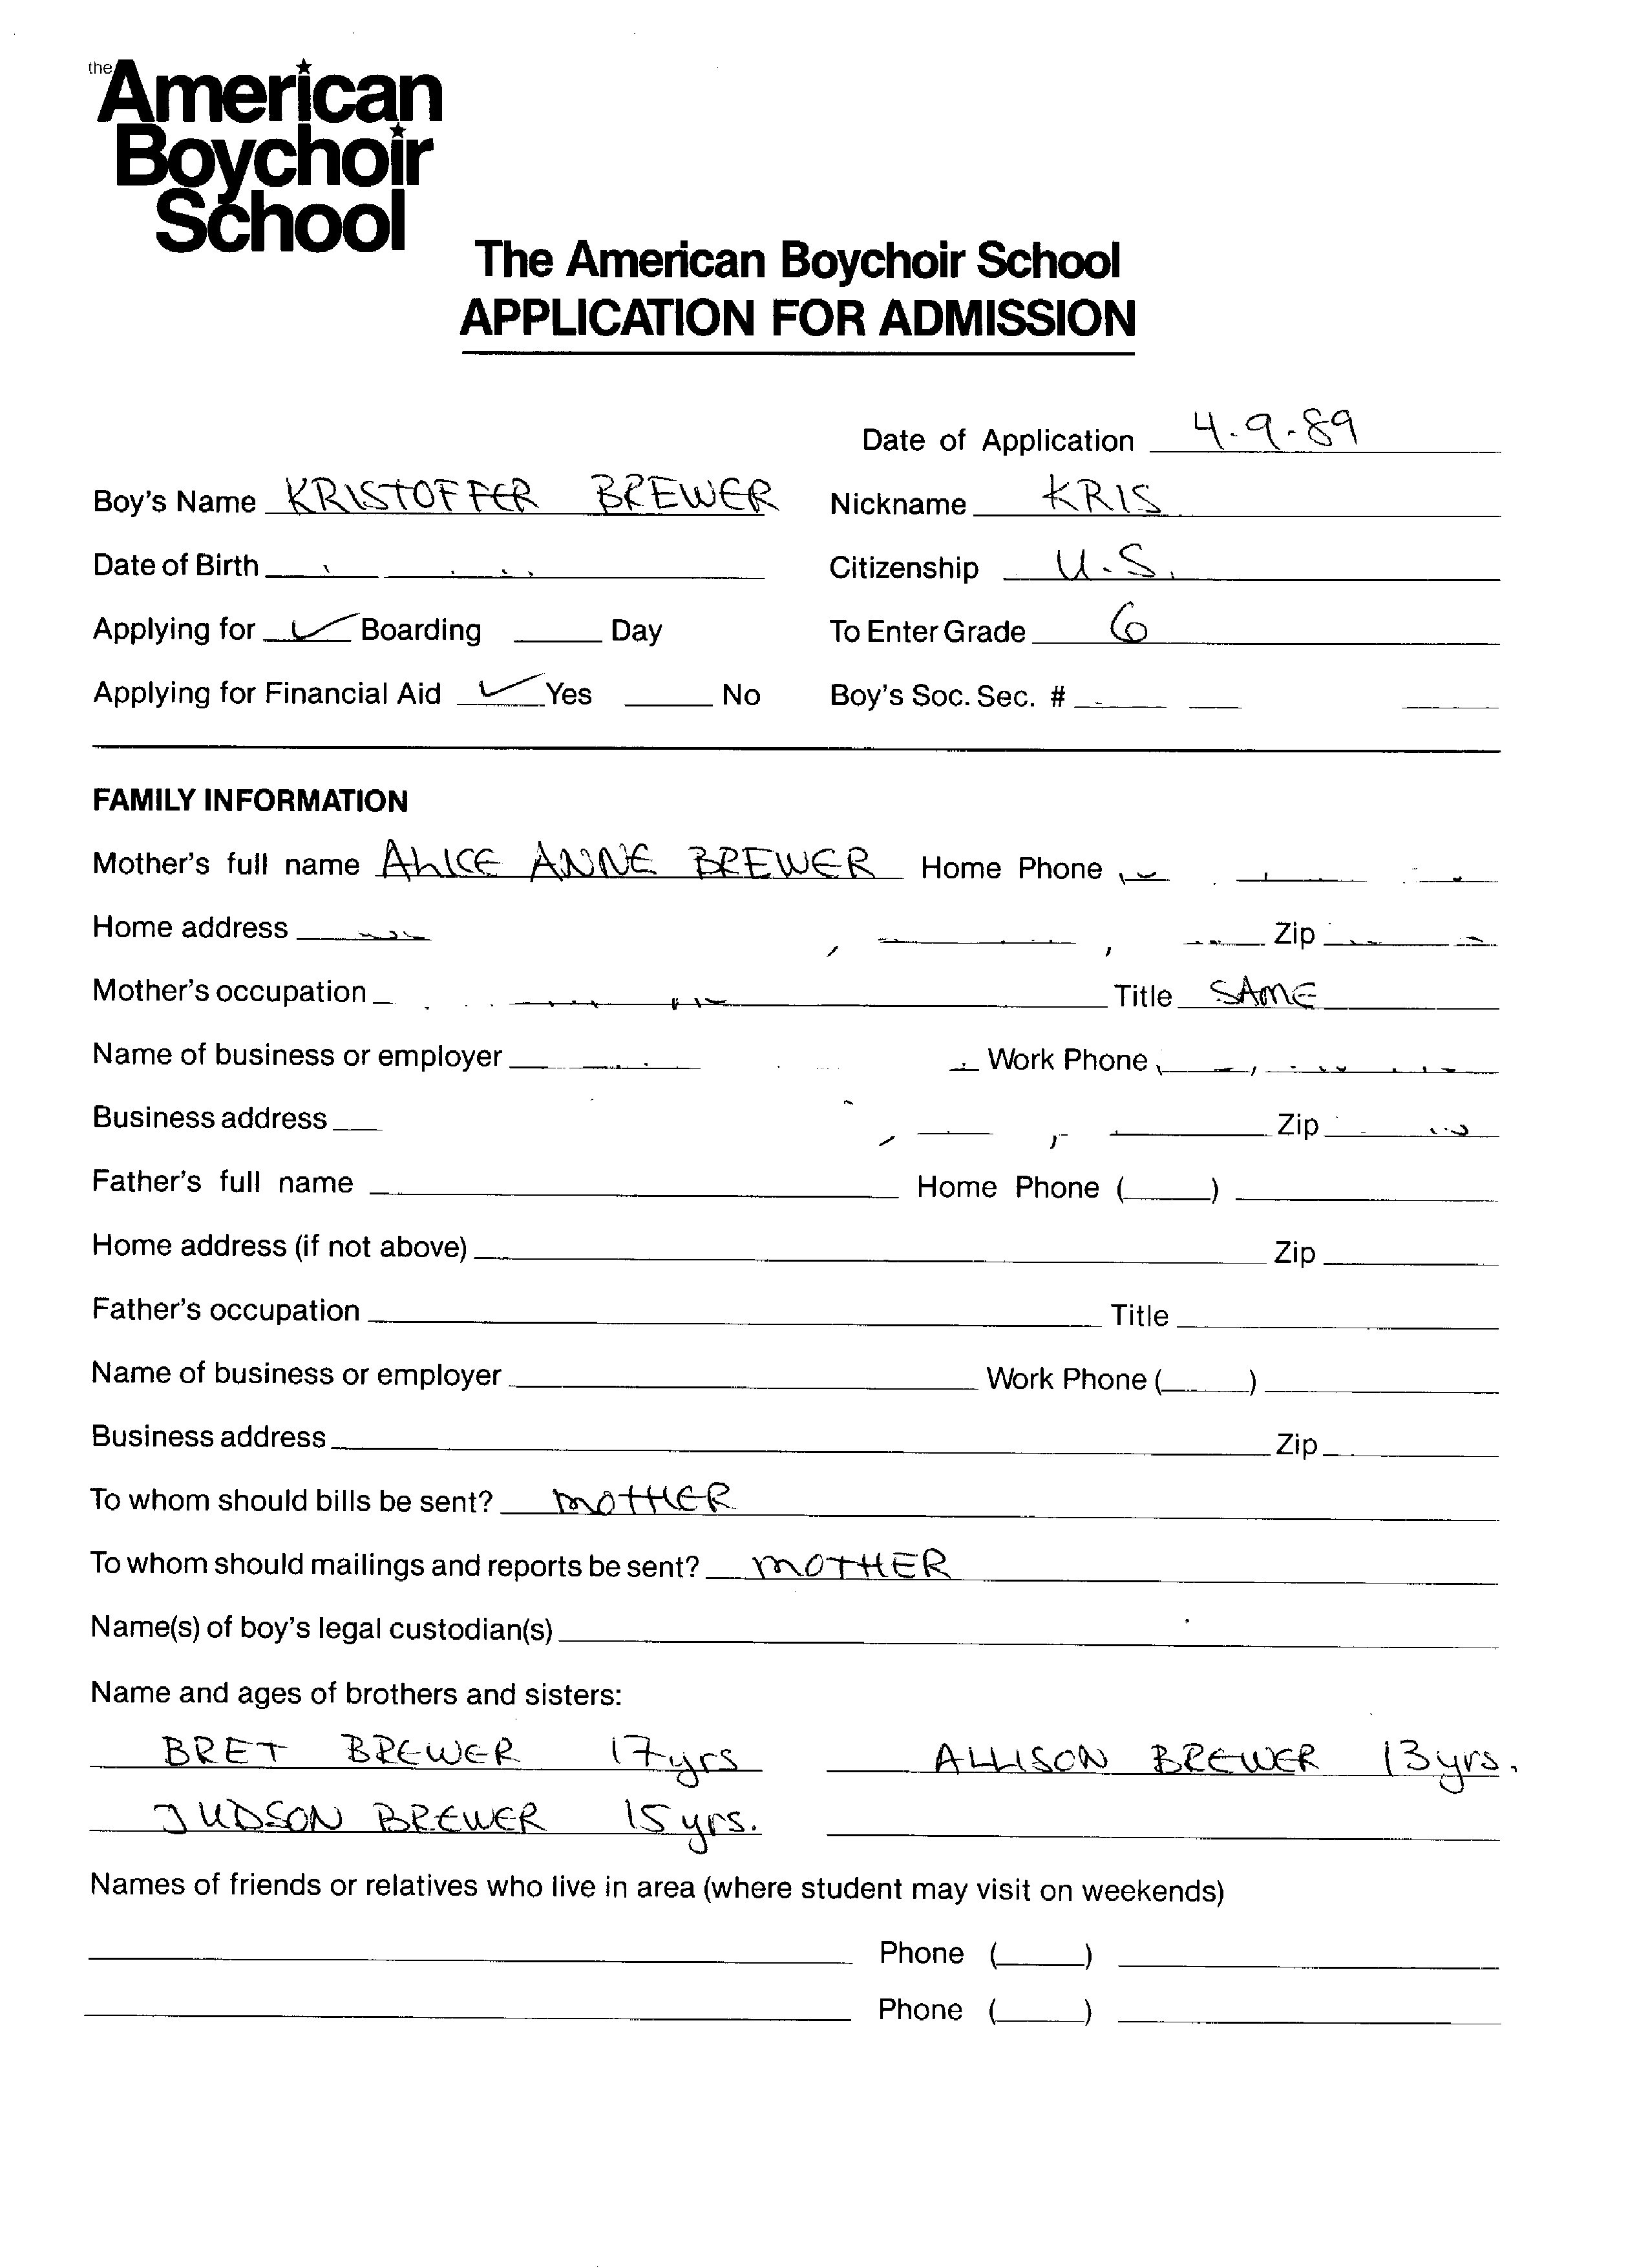 the American
Boychoir
School
The American Boychoir School
APPLICATION FOR ADMISSION
Date of Application 4.9.89
Boy's Name KRISTOFFER BREWER Nickname KRIS
Date of Birth Citizenship U.S.
Applying for ✓ Boarding Day To Enter Grade 6
Applying for Financial Aid ✓ Yes No Boy's Soc. Sec. #
FAMILY INFORMATION
Mother's full name ALICE ANNE BREWER Home Phone
Home address , , Zip
Mother's occupation Title SAME
Name of business or employer Work Phone
Business address , , Zip
Father's full name Home Phone ( )
Home address (if not above) Zip
Father's occupation Title
Name of business or employer Work Phone ( )
Business address Zip
To whom should bills be sent? MOTHER
To whom should mailings and reports be sent? MOTHER
Name(s) of boy's legal custodian(s)
Name and ages of brothers and sisters:
BRET BREWER 17 yrs ALLISON BREWER 13 yrs.
JUDSON BREWER 15 yrs.
Names of friends or relatives who live in area (where student may visit on weekends)
Phone ( )
Phone ( )